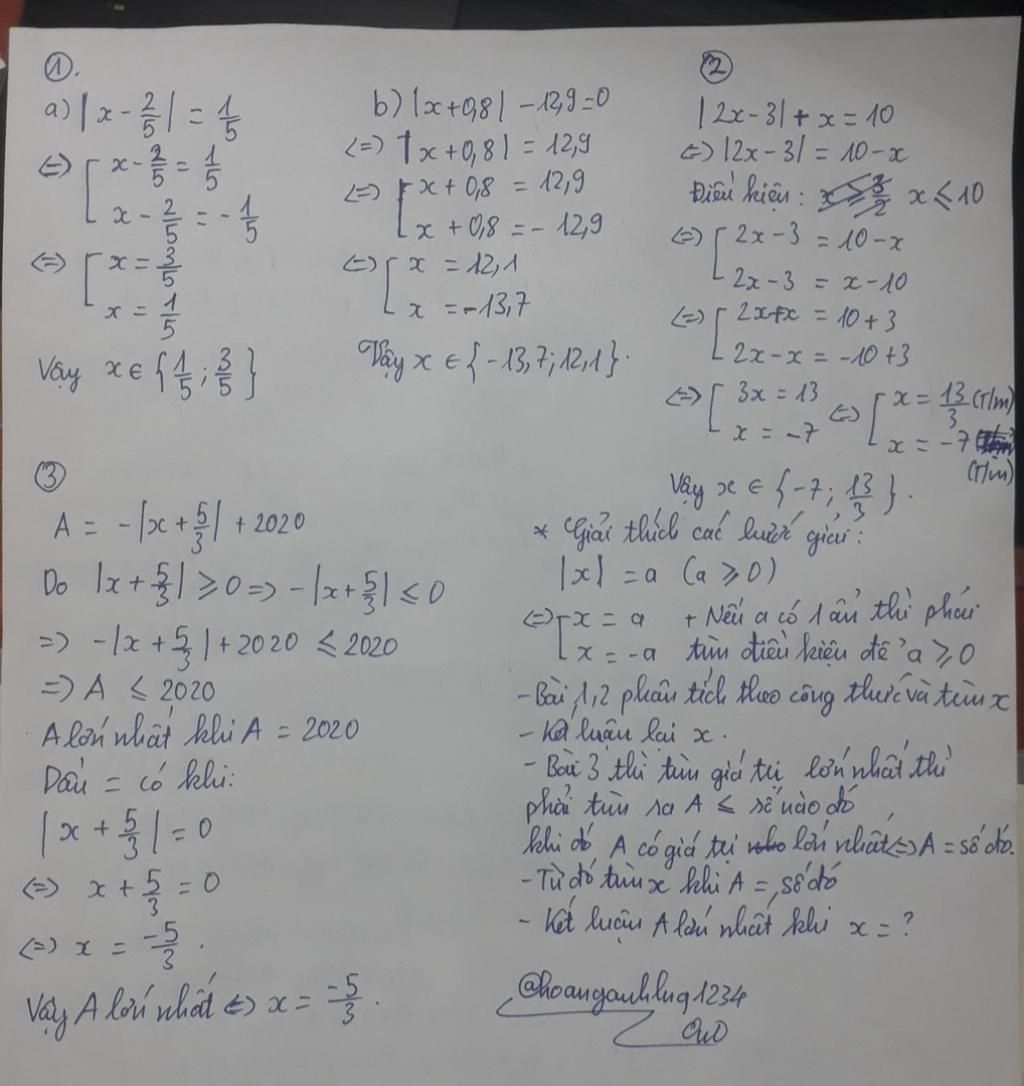 ①.
a) |x - 2/5| = 1/5
⇔ [ x - 2/5 = 1/5
x - 2/5 = - 1/5
⇔ [ x = 3/5
x = 1/5
Vậy x ∈ {1/5 ; 3/5}
b) |x + 0,8| - 12,9 = 0
⇔ |x + 0,8| = 12,9
⇔ [ x + 0,8 = 12,9
x + 0,8 = - 12,9
⇔ [ x = 12,1
x = -13,7
Vậy x ∈ {-13,7; 12,1}.
②
|2x - 3| + x = 10
⇔ |2x - 3| = 10 - x
Điều kiện: x ≤ 10
⇔ [ 2x - 3 = 10 - x
2x - 3 = x - 10
⇔ [ 2x + x = 10 + 3
2x - x = -10 + 3
⇔ [ 3x = 13 ⇔ [ x = 13/3 (T/m)
x = -7 x = -7 (T/m)
Vậy x ∈ {-7; 13/3}.
③
A = -|x + 5/3| + 2020
Do |x + 5/3| ≥ 0 => -|x + 5/3| ≤ 0
=> -|x + 5/3| + 2020 ≤ 2020
=> A ≤ 2020
A lớn nhất khi A = 2020
Dấu = có khi:
|x + 5/3| = 0
⇔ x + 5/3 = 0
⇔ x = -5/3.
Vậy A lớn nhất ⇔ x = -5/3.
* Giải thích các bước giải:
|x| = a (a ≥ 0)
⇔ [ x = a + Nếu a có 1 ẩn thì phải
x = -a tìm điều kiện để a ≥ 0
- Bài 1,2 phân tích theo công thức và tìm x
- Kết luận lại x.
- Bài 3 thì tìm giá trị lớn nhất thì
phải tìm ra A ≤ số nào đó,
khi đó A có giá trị lớn nhất ⇔ A = số đó.
- Từ đó tìm x khi A = số đó
- Kết luận A lớn nhất khi x = ?
@hoanganhlnq1234
OwO